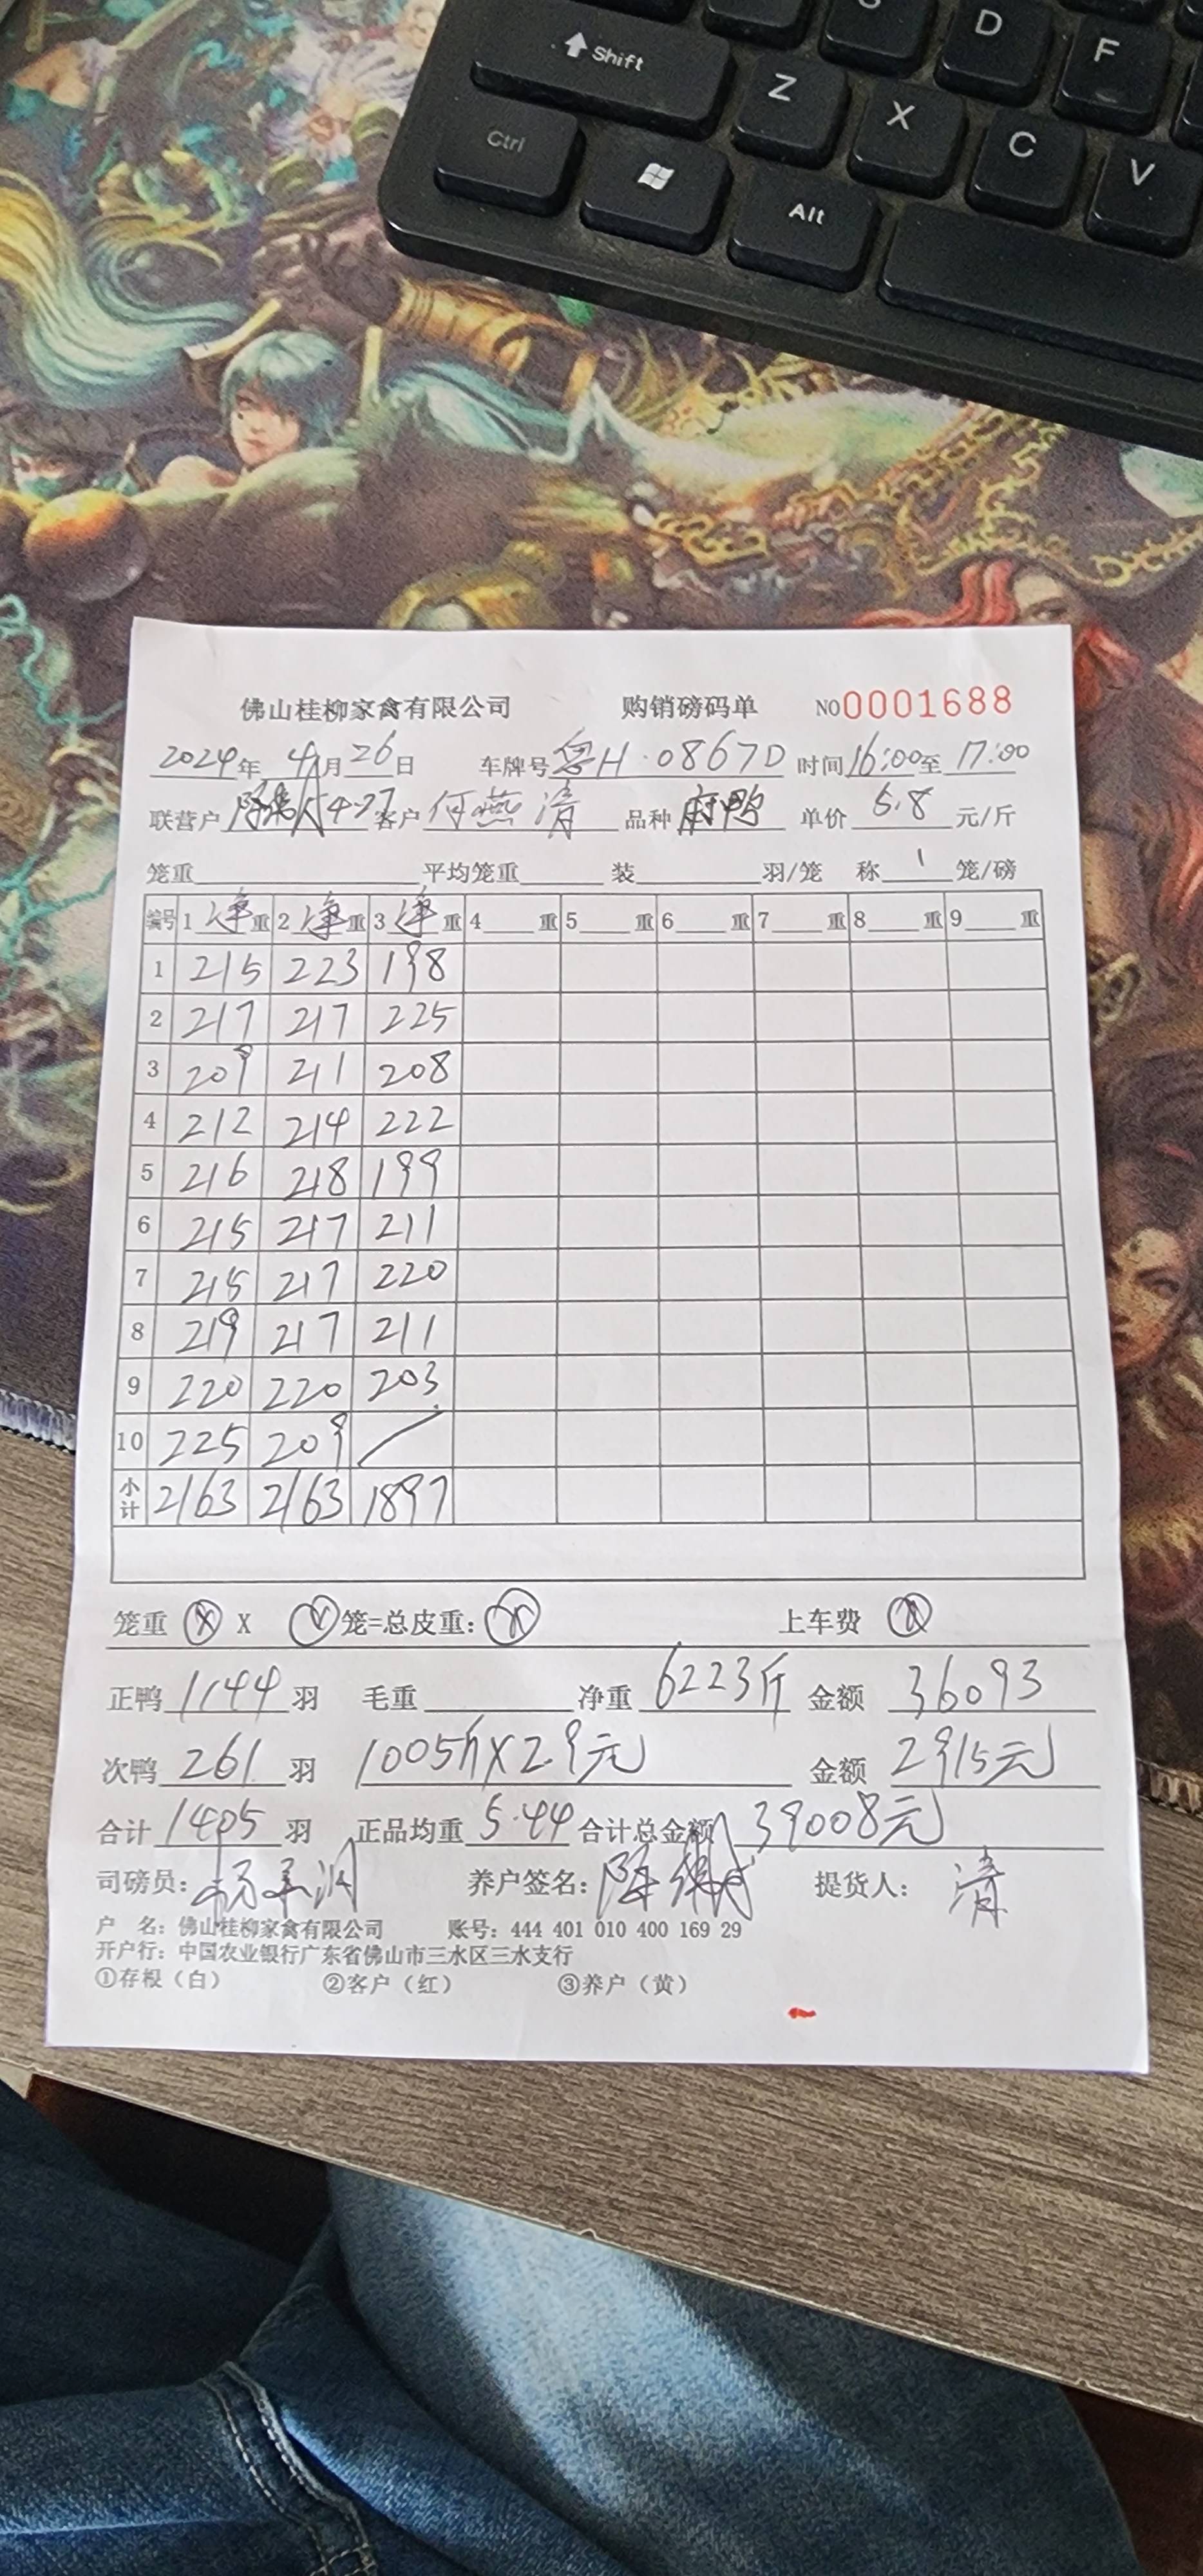 Shift
S
D
F
Z
X
C
V
Ctrl
Alt
佛山桂柳家禽有限公司 购销磅码单 NO 0001688
2024年 4月 26日 车牌号 H·0867D 时间 16:00至 17:00
联营户 4-27 客户 何燕清 品种 麻鸭 单价 5.8 元/斤
笼重 平均笼重 装 羽/笼 称 1 笼/磅
编号 1 净重 2 净重 3 净重 4 重 5 重 6 重 7 重 8 重 9 重
1 215 223 198
2 217 217 225
3 209 211 208
4 212 214 222
5 216 218 199
6 215 217 211
7 215 217 220
8 219 217 211
9 220 220 203
10 225 209 /
小计 2163 2163 1897
笼重 X 笼=总皮重: 上车费
正鸭 1144 羽 毛重 净重 6223斤 金额 36093
次鸭 261 羽 1005斤X2.9元 金额 2915元
合计 1405 羽 正品均重 5.44 合计总金额 39008元
司磅员: 养户签名: 陈 提货人: 清
户 名: 佛山桂柳家禽有限公司 账号: 444 401 010 400 169 29
开户行: 中国农业银行广东省佛山市三水区三水支行
①存根(白) ②客户(红) ③养户(黄)